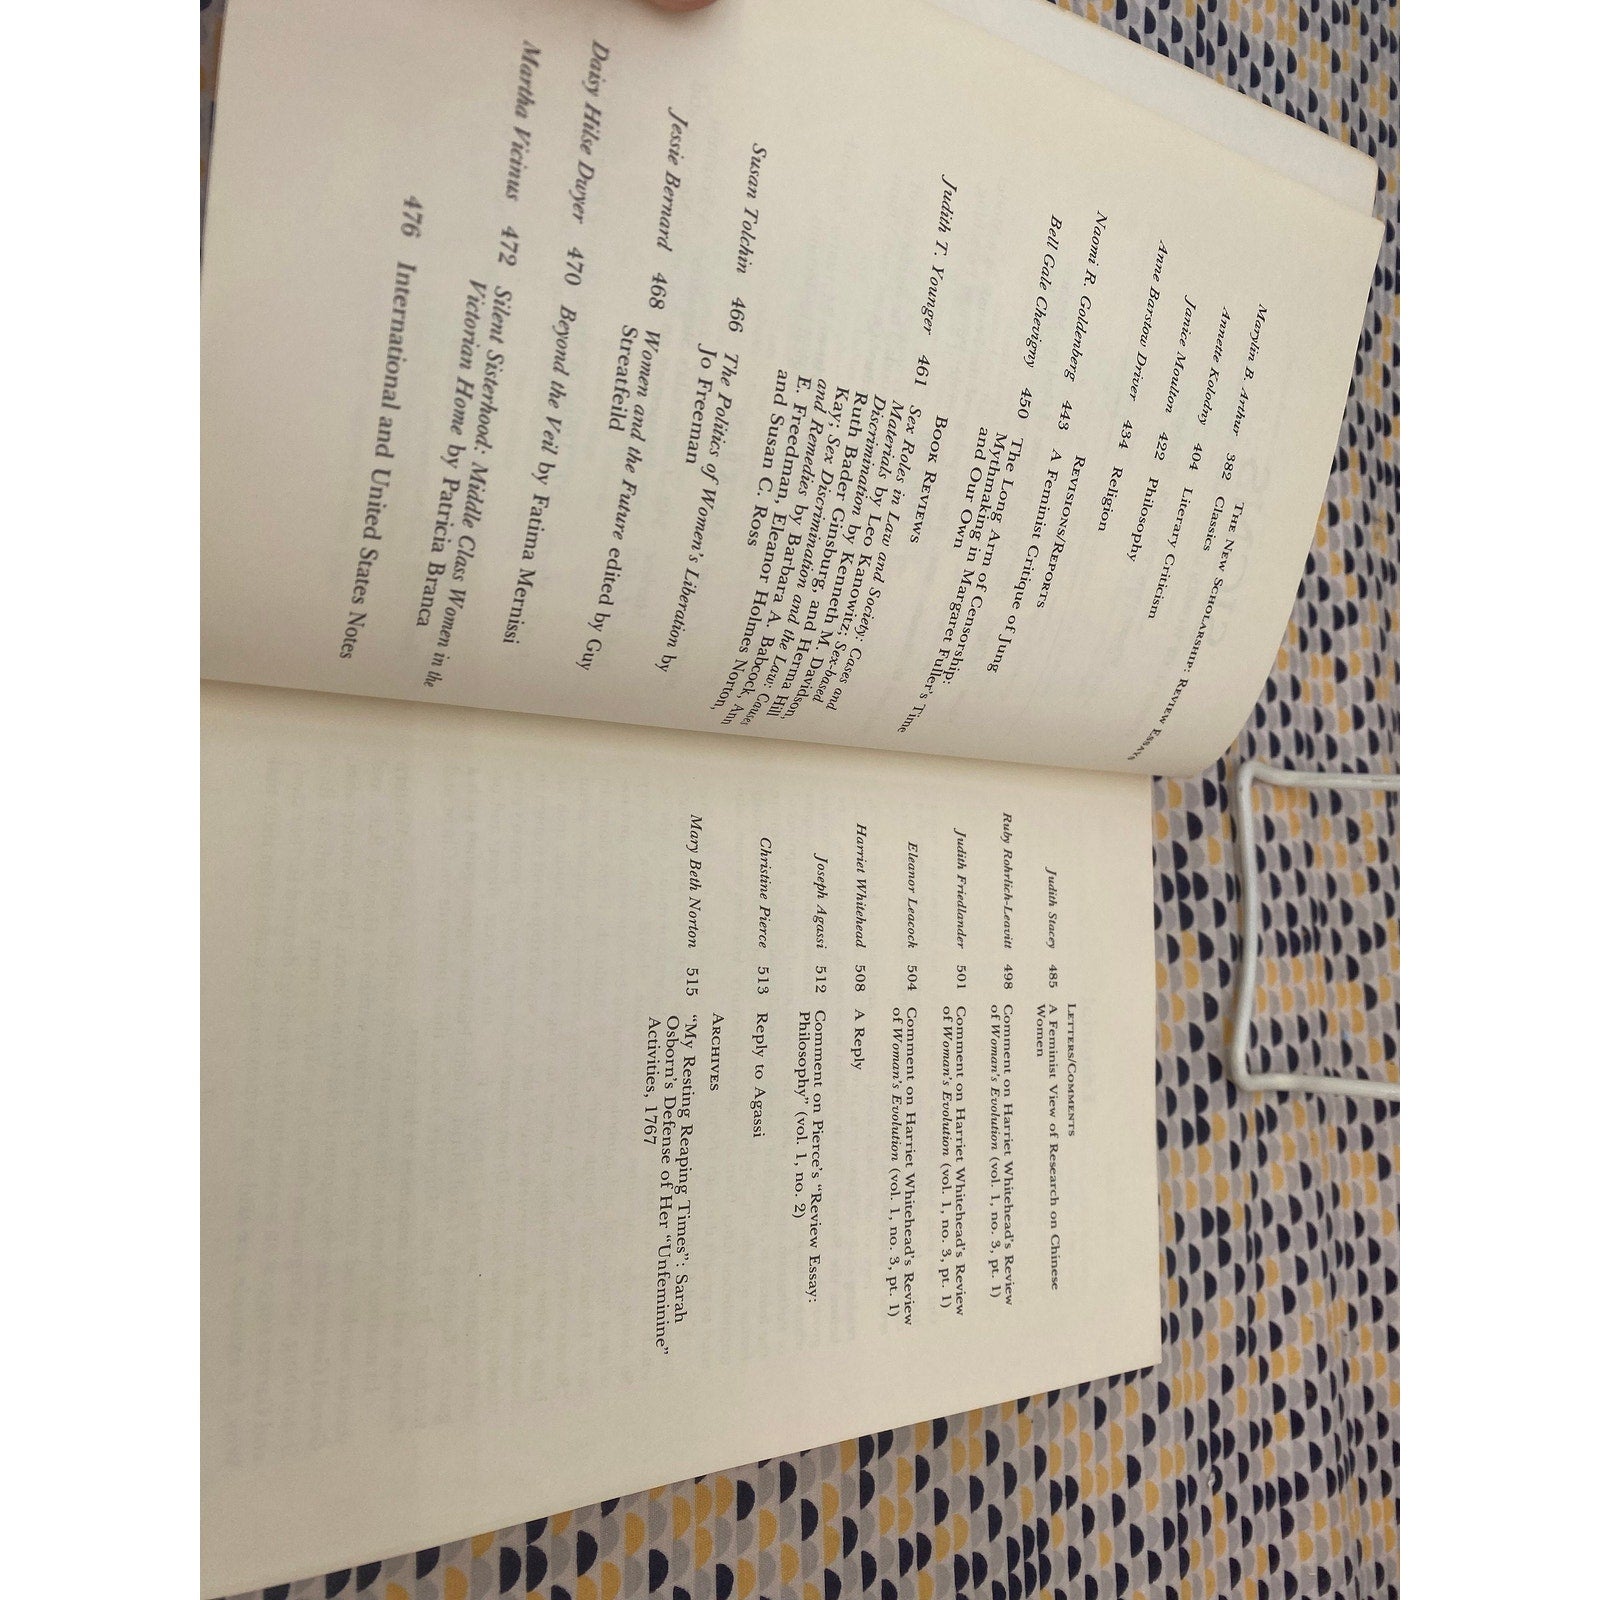 THE NEW SCHOLARSHIP: REVIEW ESSAYS
Marylin B. Arthur 382 Classics
Annette Kolodny 404 Literary Criticism
Janice Moulton 422 Philosophy
Anne Barstow Driver 434 Religion
REVISIONS/REPORTS
Naomi R. Goldenberg 443 A Feminist Critique of Jung
Bell Gale Chevigny 450 The Long Arm of Censorship:
Mythmaking in Margaret Fuller's Time
and Our Own
BOOK REVIEWS
Judith T. Younger 461 Sex Roles in Law and Society: Cases and
Materials by Leo Kanowitz; Sex-based
Discrimination by Kenneth M. Davidson,
Ruth Bader Ginsburg, and Herma Hill
Kay; Sex Discrimination and the Law: Causes
and Remedies by Barbara A. Babcock, Ann
E. Freedman, Eleanor Holmes Norton,
and Susan C. Ross
Susan Tolchin 466 The Politics of Women's Liberation by
Jo Freeman
Jessie Bernard 468 Women and the Future edited by Guy
Streatfeild
Daisy Hilse Dwyer 470 Beyond the Veil by Fatima Mernissi
Martha Vicinus 472 Silent Sisterhood: Middle Class Women in the
Victorian Home by Patricia Branca
476 International and United States Notes
LETTERS/COMMENTS
Judith Stacey 485 A Feminist View of Research on Chinese
Women
Ruby Rohrlich-Leavitt 498 Comment on Harriet Whitehead's Review
of Woman's Evolution (vol. 1, no. 3, pt. 1)
Judith Friedlander 501 Comment on Harriet Whitehead's Review
of Woman's Evolution (vol. 1, no. 3, pt. 1)
Eleanor Leacock 504 Comment on Harriet Whitehead's Review
of Woman's Evolution (vol. 1, no. 3, pt. 1)
Harriet Whitehead 508 A Reply
Joseph Agassi 512 Comment on Pierce's "Review Essay:
Philosophy" (vol. 1, no. 2)
Christine Pierce 513 Reply to Agassi
ARCHIVES
Mary Beth Norton 515 "My Resting Reaping Times": Sarah
Osborn's Defense of Her "Unfeminine"
Activities, 1767